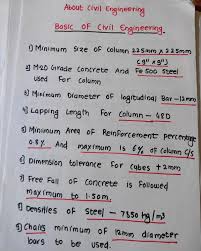 About Civil Engineering
Basic of Civil Engineering.
1) Minimum Size of Column 225mm x 225mm
(9" x 9")
2) M20 Grade Concrete And Fe 500 Steel
used For Column
3) Minimum Diameter of logitudinal Bar - 12mm
4) Lapping Length For Column - 48D
5) Minimum Area of Reinforcement percentage
0.8% And maximum is 6% of Column C/S
6) Dimension tolerance for cubes +2mm
7) Free Fall of Concrete is Followed
maximum to 1.50m.
8) Densities of Steel - 7850 kg/m3
9) Chairs minimum of 12mm diameter
bars to be used.